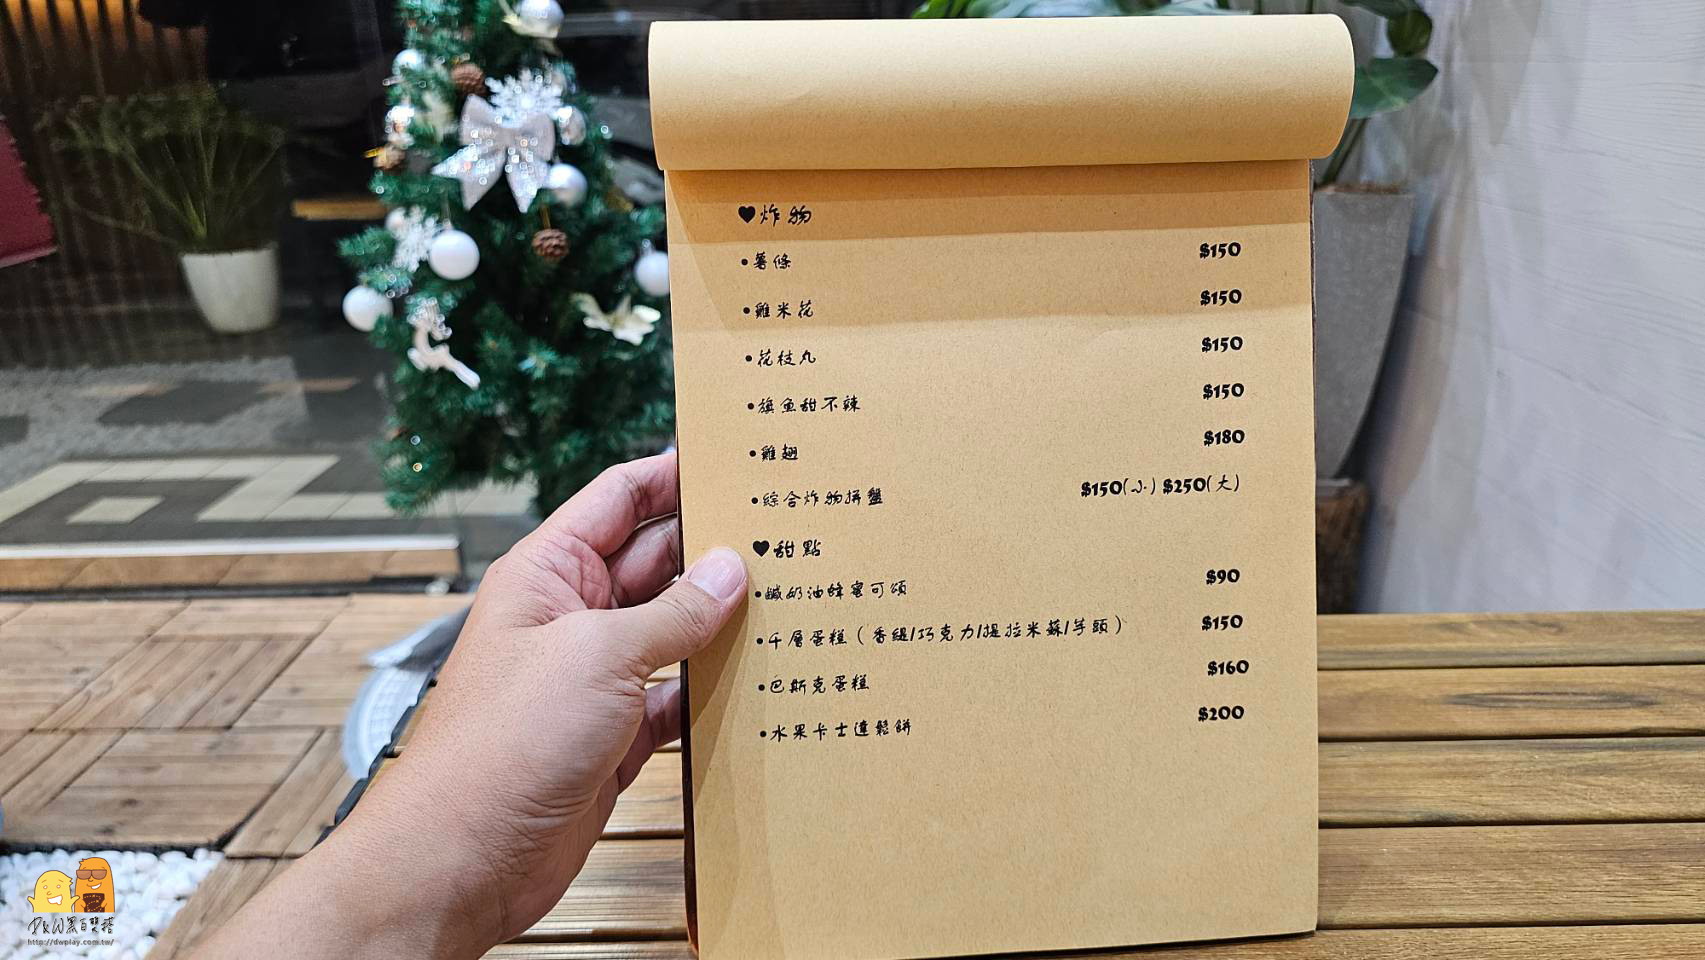 ♥炸物
•薯條 $150
•雞米花 $150
•花枝丸 $150
•旗魚甜不辣 $150
•雞翅 $180
•綜合炸物拼盤 $150(小) $250(大)
♥甜點
•鹹奶油蜂蜜可頌 $90
•千層蛋糕(香緹/巧克力/提拉米蘇/芋頭) $150
•巴斯克蛋糕 $160
•水果卡士達鬆餅 $200
D&W黑白雙搭
http://dwplay.com.tw/